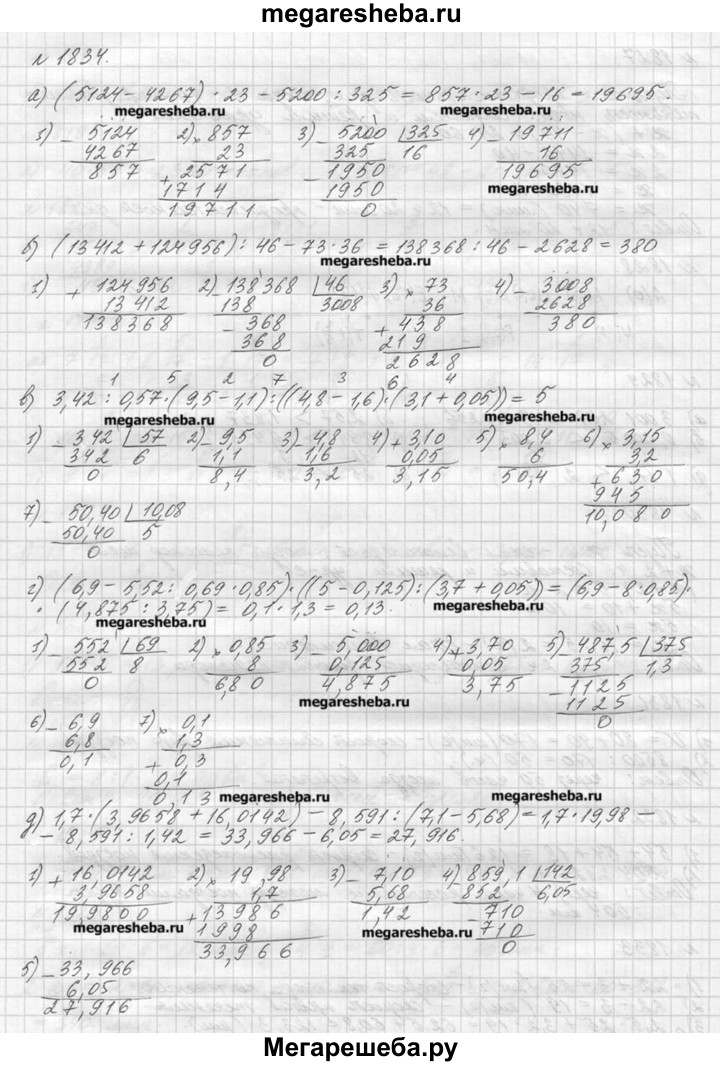 megaresheba.ru
№ 1834.
а) (5124 - 4267) · 23 - 5200 : 325 = 857 · 23 - 16 = 19695.
megaresheba.ru megaresheba.ru
1) - 5124 2) × 857 3) - 5200 | 325 4) - 19711
4267 23 325 16 16
857 + 2571 - 1950 19695
1714 1950 megaresheba.ru
19711 0
б) (13412 + 124956) : 46 - 73 · 36 = 138368 : 46 - 2628 = 380
megaresheba.ru
1) + 124956 2) - 138368 | 46 3) × 73 4) - 3008
13412 138 3008 36 2628
138368 - 368 + 438 380
368 219
0 2628
1 5 2 7 3 6 4
в) 3,42 : 0,57 · (9,5 - 1,1) : ((4,8 - 1,6) · (3,1 + 0,05)) = 5
megaresheba.ru megaresheba.ru
1) - 342 | 57 2) - 9,5 3) - 4,8 4) + 3,10 5) × 8,4 6) × 3,15
342 6 1,1 1,6 0,05 6 3,2
0 8,4 3,2 3,15 50,4 + 630
945
7) - 50,40 | 10,08 10,080
50,40 5
0
г) (6,9 - 5,52 : 0,69 · 0,85) · ((5 - 0,125) : (3,7 + 0,05)) = (6,9 - 8 · 0,85) ·
· (4,875 : 3,75) = 0,1 · 1,3 = 0,13. megaresheba.ru
megaresheba.ru
1) - 552 | 69 2) × 0,85 3) - 5,000 4) + 3,70 5) - 487,5 | 375
552 8 8 0,125 0,05 375 1,3
0 6,80 4,875 3,75 - 1125
megaresheba.ru 1125
0
6) - 6,9 7) × 0,1
6,8 1,3
0,1 + 0,3
0,1
0,13 megaresheba.ru megaresheba.ru
д) 1,7 · (3,9658 + 16,0142) - 8,591 : (7,1 - 5,68) = 1,7 · 19,98 -
- 8,591 : 1,42 = 33,966 - 6,05 = 27,916.
1) + 16,0142 2) × 19,98 3) - 7,10 4) - 859,1 | 142
3,9658 1,7 5,68 852 6,05
19,9800 + 13986 1,42 - 710
megaresheba.ru 1998 megaresheba.ru 710
33,966 0
5) - 33,966
6,05
27,916
Мегарешеба.ру